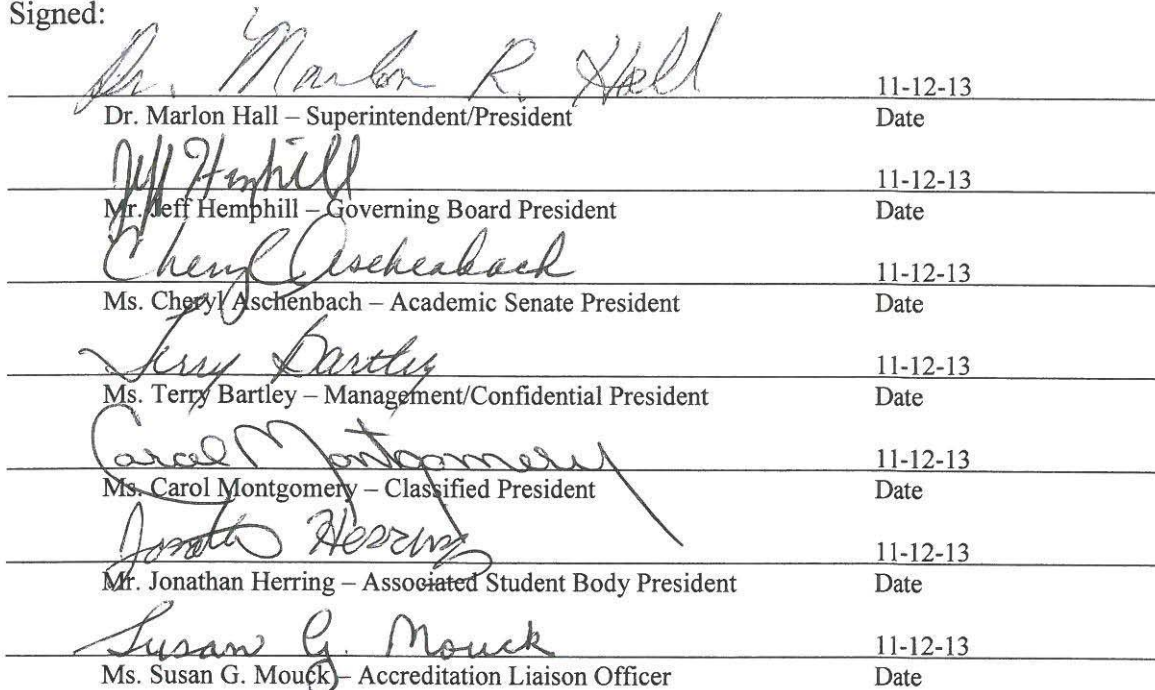 Signed:
Dr. Marlon R. Hall 11-12-13
Dr. Marlon Hall – Superintendent/President Date
Jeff Hemphill 11-12-13
Mr. Jeff Hemphill – Governing Board President Date
Cheryl Aschenbach 11-12-13
Ms. Cheryl Aschenbach – Academic Senate President Date
Terry Bartley 11-12-13
Ms. Terry Bartley – Management/Confidential President Date
Carol Montgomery 11-12-13
Ms. Carol Montgomery – Classified President Date
Jonathan Herring 11-12-13
Mr. Jonathan Herring – Associated Student Body President Date
Susan G. Mouck 11-12-13
Ms. Susan G. Mouck – Accreditation Liaison Officer Date